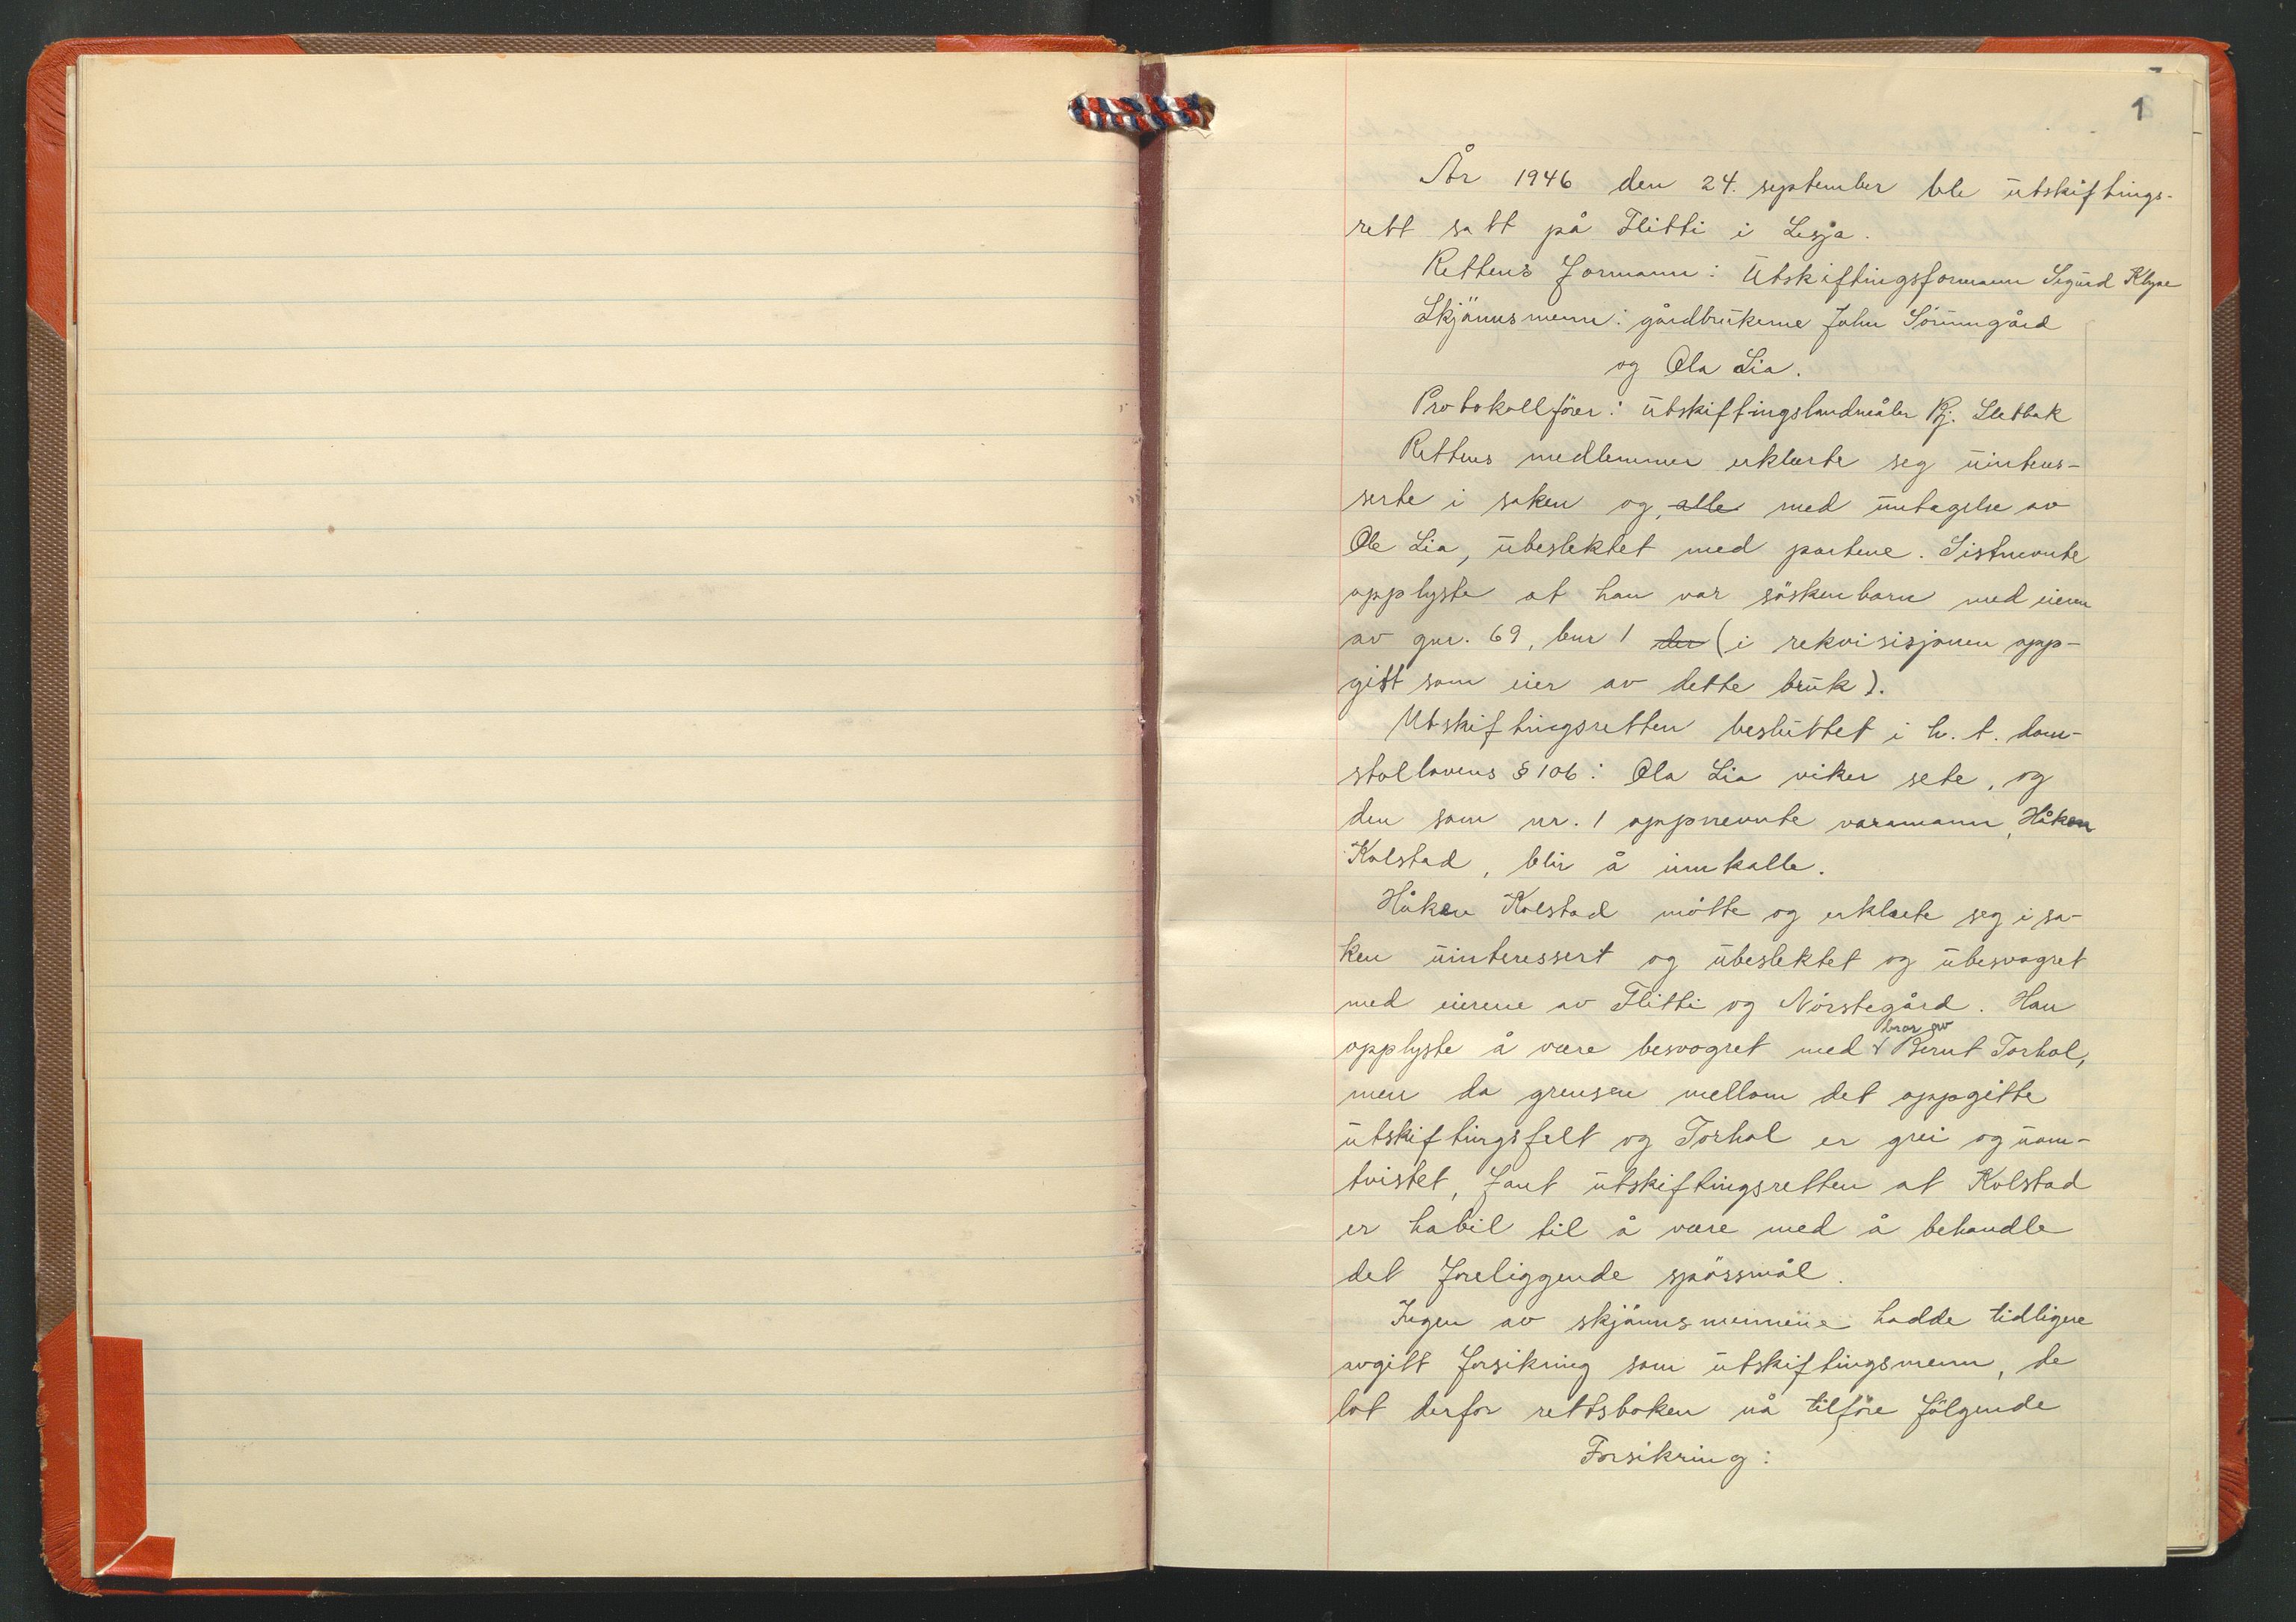 1
År 1946 den 24. september ble utskiftings-
rett satt på Flitti i Lesja.
Rettens formann: Utskiftingsformann Sigurd Klype
Skjönnsmenn: gårdbrukerne John Sörumgård
og Ola Lia.
Protokollförer: utskiftingslandmåler Bj. Sletbak
Rettens medlemmer erklærte seg uinteres-
serte i saken og, alle med untagelse av
Ole Lia, ubeslektet med partene. Sistnevnte
opplyste at han var söskenbarn med eieren
av gnr. 69, bnr 1 den (i rekvisisjonen opp-
gitt som eier av dette bruk).
Utskiftingsretten besluttet i h. t. dom-
stollovens § 106: Ola Lia viker sete, og
den som nr. 1 oppnevnte varamann, Håken
Kolstad, blir å innkalle.
Håken Kolstad mötte og erklærte seg i sa-
ken uinteressert og ubeslektet og ubesvogret
med eierene av Flitti og Norstegård. Han
opplyste å være besvogret med bror av Bernt Torhol,
men da grensen mellom det oppgitte
utskiftingsfelt og Torhol er grei og uom-
tvistet, fant utskiftingsretten at Kolstad
er habil til å være med å behandle
det foreliggende spörsmål.
Ingen av skjönnsmennene hadde tidligere
avgitt forsikring som utskiftingsmenn, de
lot derfor rettsboken nå tilföre fölgende
Forsikring: